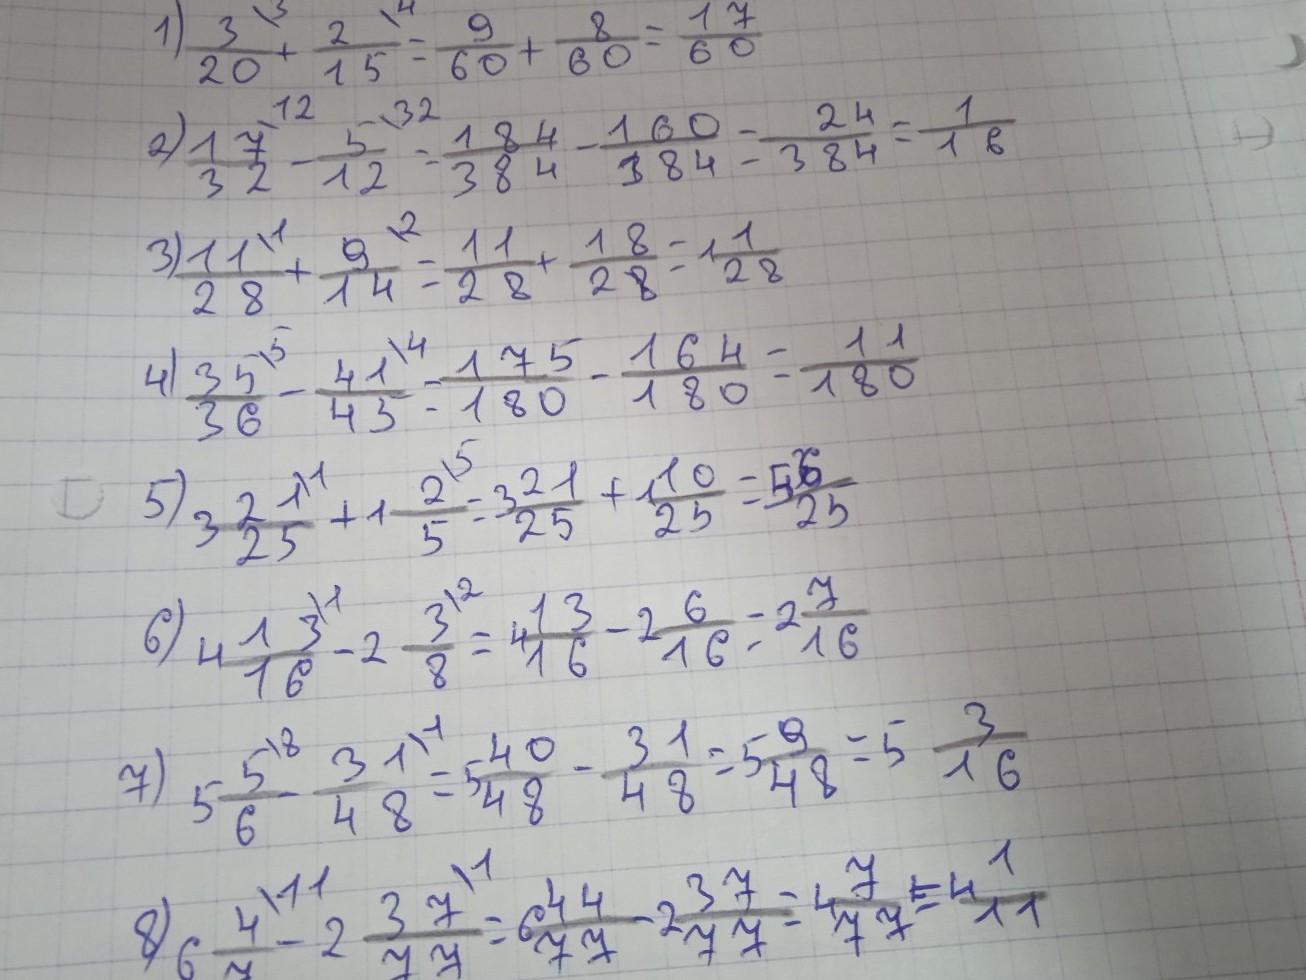 1) 3/20 \3 + 2/15 \4 = 9/60 + 8/60 = 17/60
2) 17/32 \12 - 5/12 \32 = 184/384 - 160/384 = 24/384 = 1/16
3) 11/28 \1 + 9/14 \2 = 11/28 + 18/28 = 1 1/28
4) 35/36 \5 - 41/43 \4 = 175/180 - 164/180 = 11/180
5) 3 21/25 \1 + 1 2/5 \5 = 3 21/25 + 1 10/25 = 5 6/25
6) 4 13/16 \1 - 2 3/8 \2 = 4 13/16 - 2 6/16 = 2 7/16
7) 5 5/6 \8 - 31/48 \1 = 5 40/48 - 31/48 = 5 9/48 = 5 3/16
8) 6 4/7 \11 - 2 37/77 \1 = 6 44/77 - 2 37/77 = 4 7/77 = 4 1/11